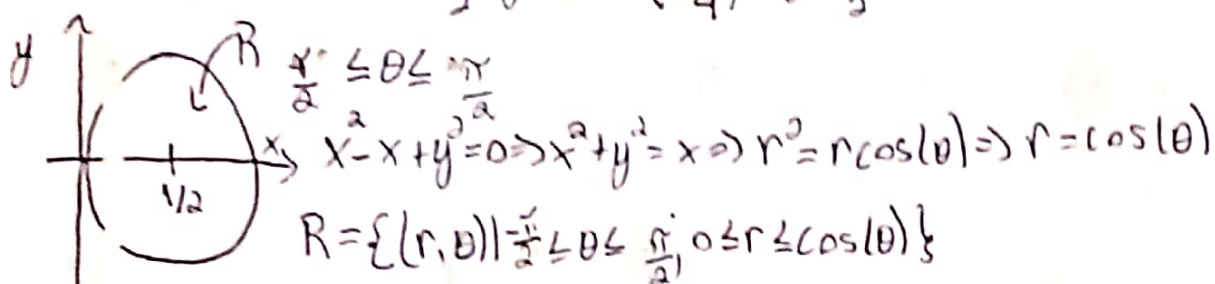 y
R π/2 ≤ θ ≤ π/2
x x² - x + y² = 0 => x² + y² = x => r² = r cos(θ) => r = cos(θ)
1/2
R = {(r, θ) | -π/2 ≤ θ ≤ π/2, 0 ≤ r ≤ cos(θ)}